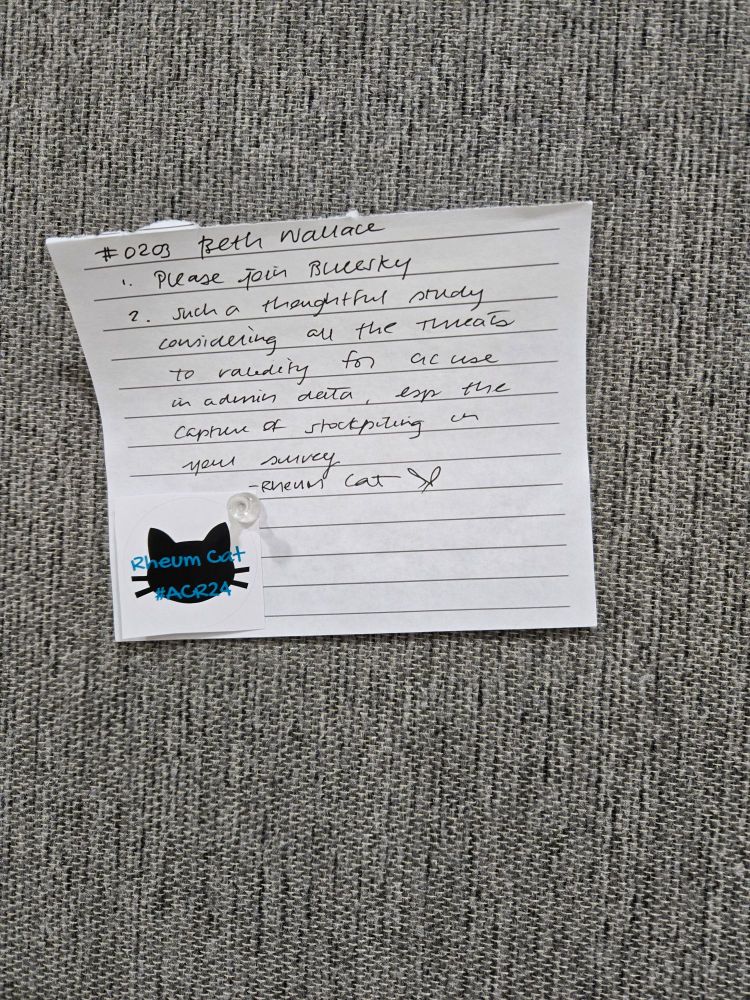 #0203 Beth Wallace
1. Please join Bluesky
2. such a thoughtful study
considering all the threats
to validity for GC use
in admin data, esp the
capture of stockpiling in
your survey
-Rheum Cat
Rheum Cat
#ACR24